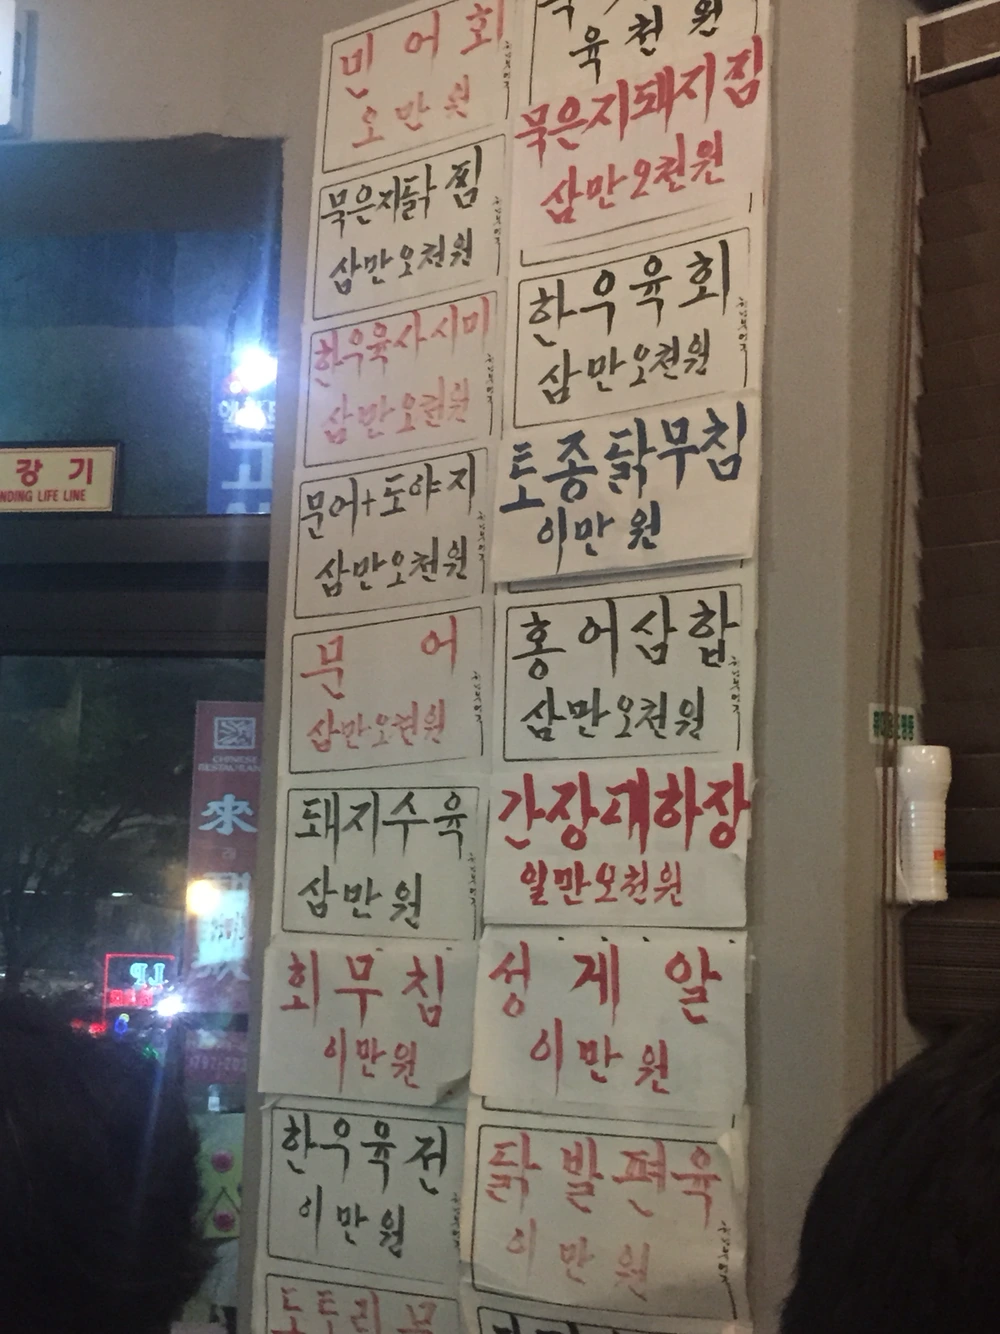 민 어 회
오 만 원
묵은지닭 찜
삼만오천원
한우육사시미
삼만오천원
문어+도야지
삼만오천원
문 어
삼만오천원
돼지수육
삼만원
회무침
이만원
한우육전
이만원
도토리묵
육천원
묵은지돼지찜
삼만오천원
한우육회
삼만오천원
토종닭무침
이만원
홍어삼합
삼만오천원
간장대하장
일만오천원
성게알
이만원
닭발편육
이만원
강기
NDING LIFE LINE
CHINESE
RESTAURANT
來